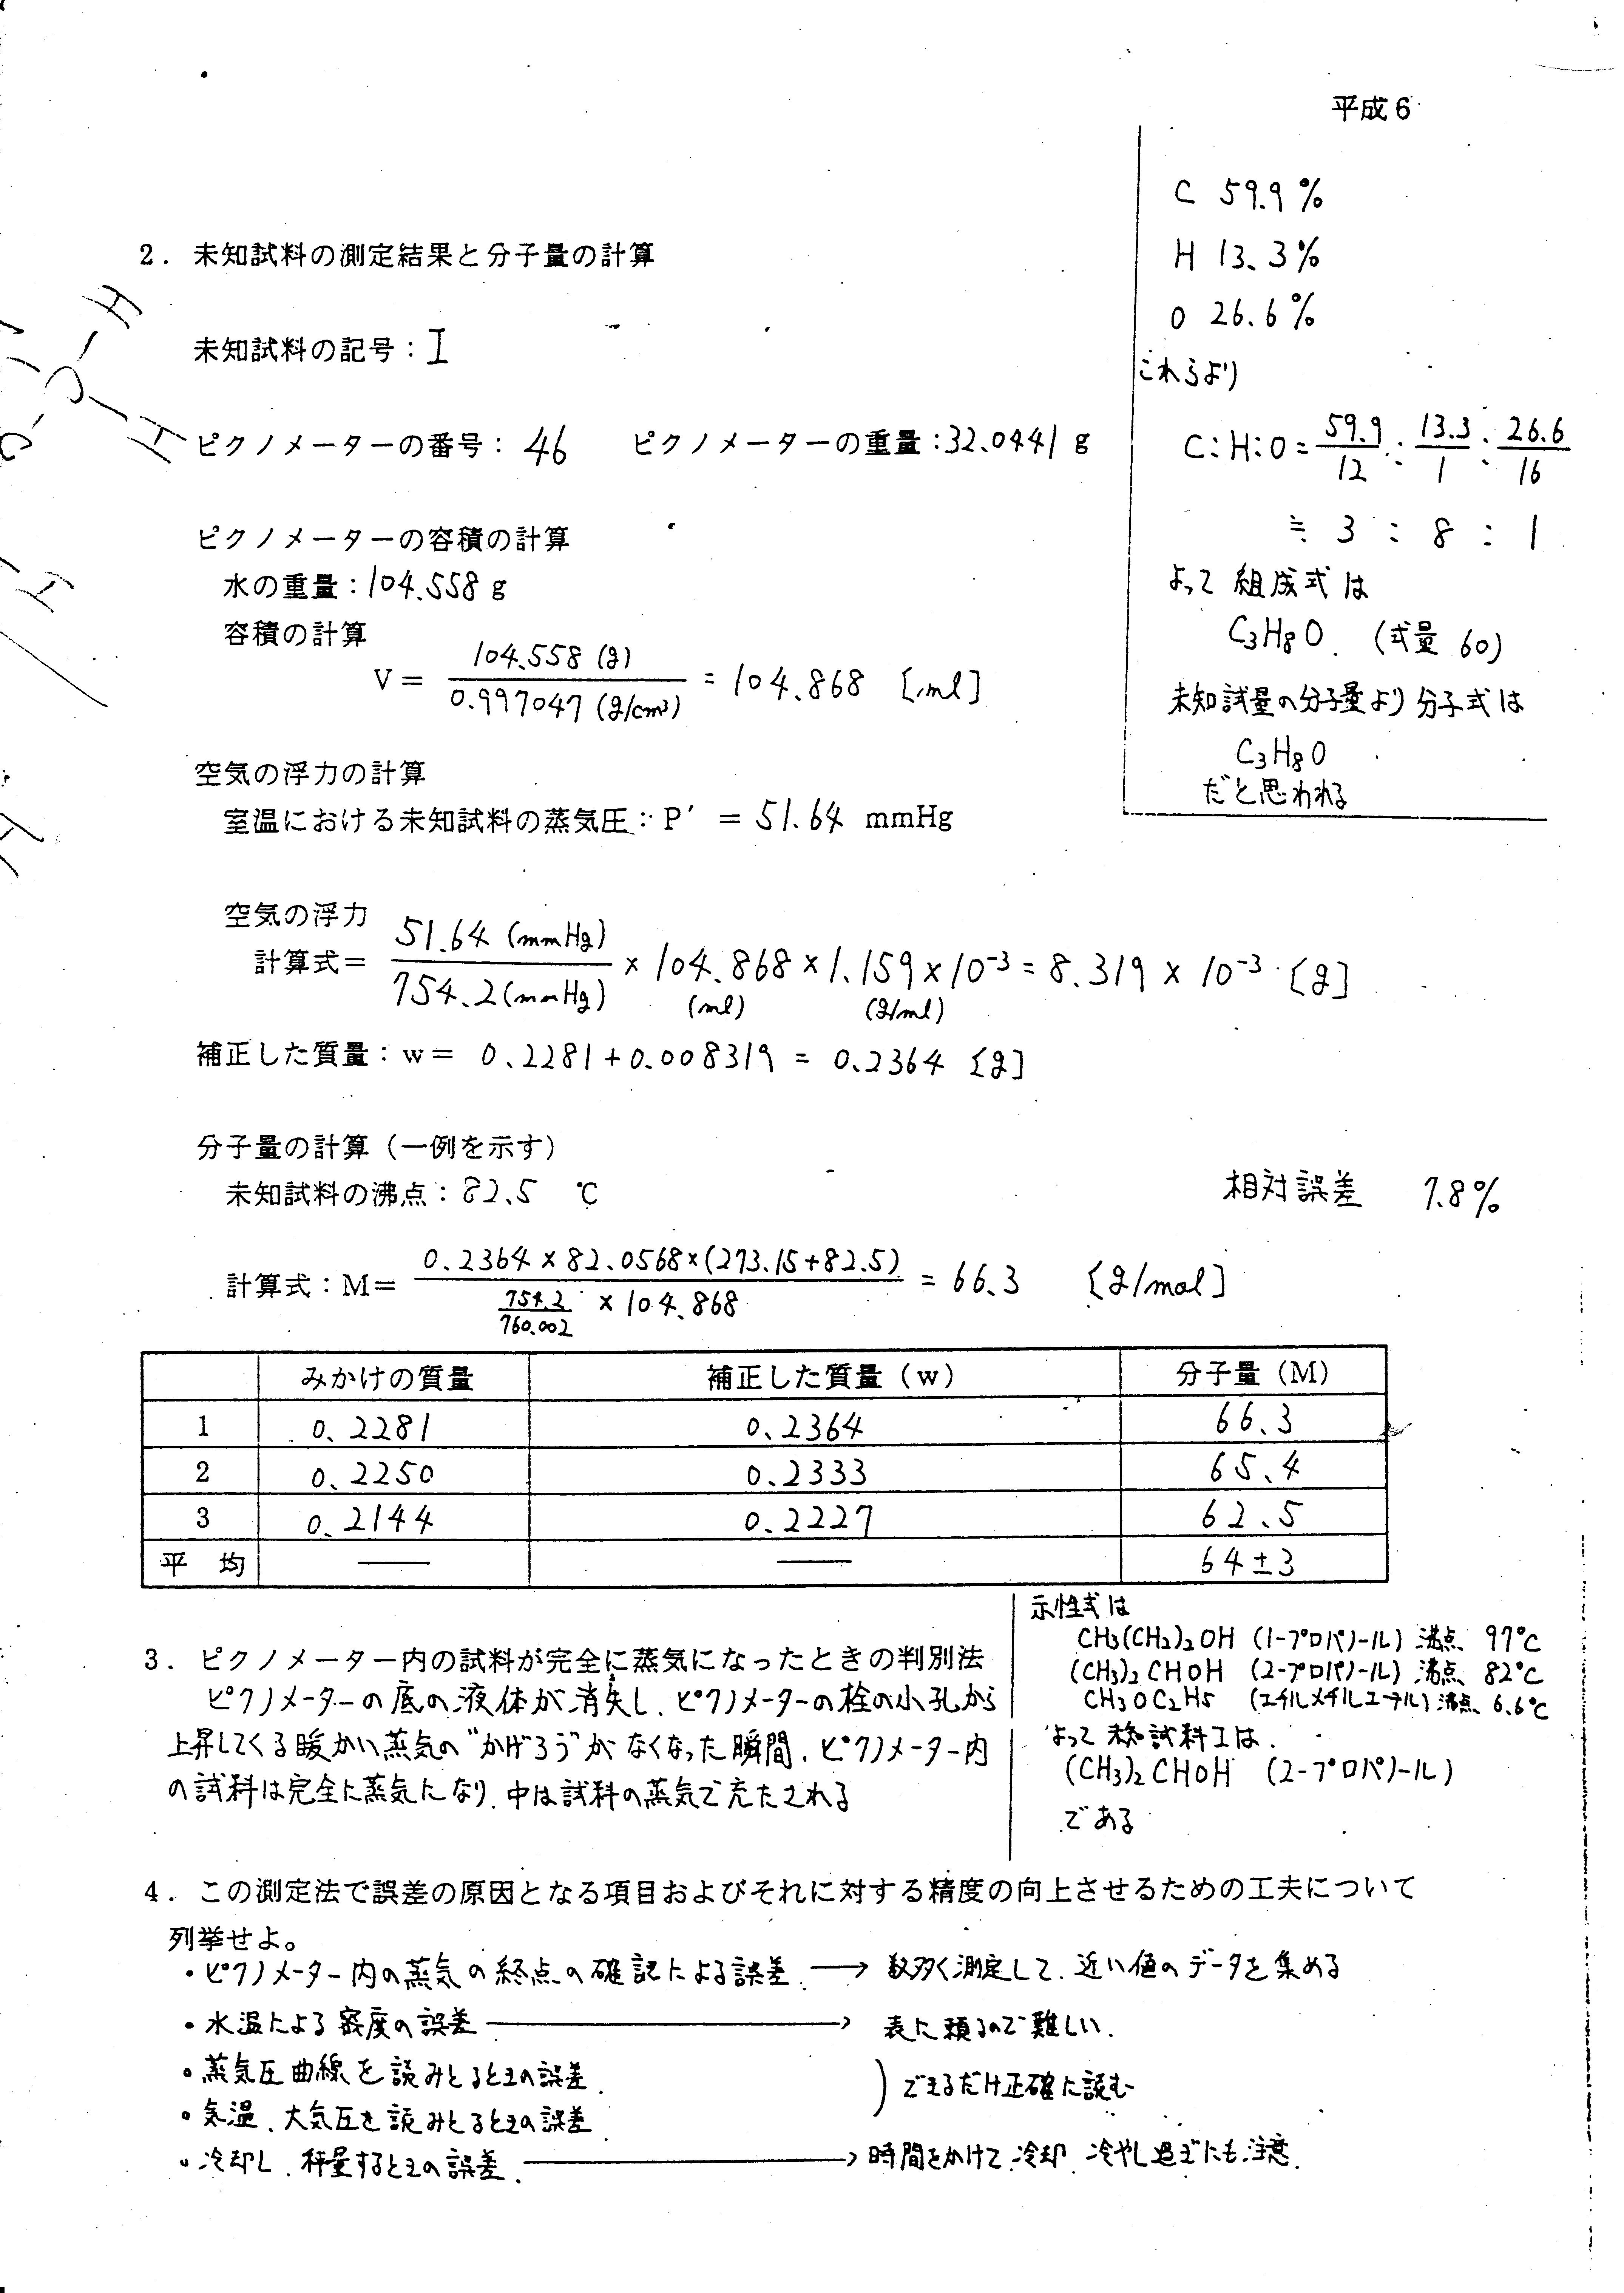 平成6
C 59.9%
H 13.3%
O 26.6%
これらより
C:H:O = 59.9/12 : 13.3/1 : 26.6/16
≒ 3 : 8 : 1
よって 組成式は
C₃H₈O. (式量 60)
未知試量の分子量より分子式は
C₃H₈O
だと思われる
2. 未知試料の測定結果と分子量の計算
未知試料の記号:I
ピクノメーターの番号: 46 ピクノメーターの重量:32.0441 g
ピクノメーターの容積の計算
水の重量:104.558 g
容積の計算
V= 104.558 (g) / 0.997047 (g/cm³) = 104.868 [ml]
空気の浮力の計算
室温における未知試料の蒸気圧:P′ = 51.64 mmHg
空気の浮力
計算式= 51.64 (mmHg) / 754.2 (mmHg) × 104.868 (ml) × 1.159×10⁻³ (g/ml) = 8.319 × 10⁻³ [g]
補正した質量:w= 0.2281+0.008319 = 0.2364 [g]
分子量の計算(一例を示す)
未知試料の沸点:82.5 ℃
相対誤差 7.8%
計算式:M= 0.2364×82.0568×(273.15+82.5) / 754.2/760.002 × 104.868 = 66.3 [g/mol]
みかけの質量 補正した質量(w) 分子量(M)
1 0.2281 0.2364 66.3
2 0.2250 0.2333 65.4
3 0.2144 0.2227 62.5
平 均 — — 64±3
示性式は
CH₃(CH₂)₂OH (1-プロパノール) 沸点 97℃
(CH₃)₂CHOH (2-プロパノール) 沸点 82℃
CH₃OC₂H₅ (エチルメチルエーテル) 沸点 6.6℃
よって 未知試料Iは
(CH₃)₂CHOH (2-プロパノール)
である
3. ピクノメーター内の試料が完全に蒸気になったときの判別法
ピクノメーターの底の液体が消失し、ピクノメーターの栓の小孔から
上昇してくる暖かい蒸気の"かげろう"がなくなった瞬間、ピクノメーター内
の試料は完全に蒸気になり、中は試料の蒸気で充たされる
4. この測定法で誤差の原因となる項目およびそれに対する精度の向上させるための工夫について
列挙せよ。
・ピクノメーター内の蒸気の終点の確認による誤差. → 数多く測定して、近い値のデータを集める
・水温による密度の誤差 → 表に頼るので難しい.
・蒸気圧曲線を読みとるときの誤差.
・気温、大気圧を読みとるときの誤差
) できるだけ正確に読む
・冷却し、秤量するときの誤差. → 時間をかけて冷却、冷やし過ぎにも注意.